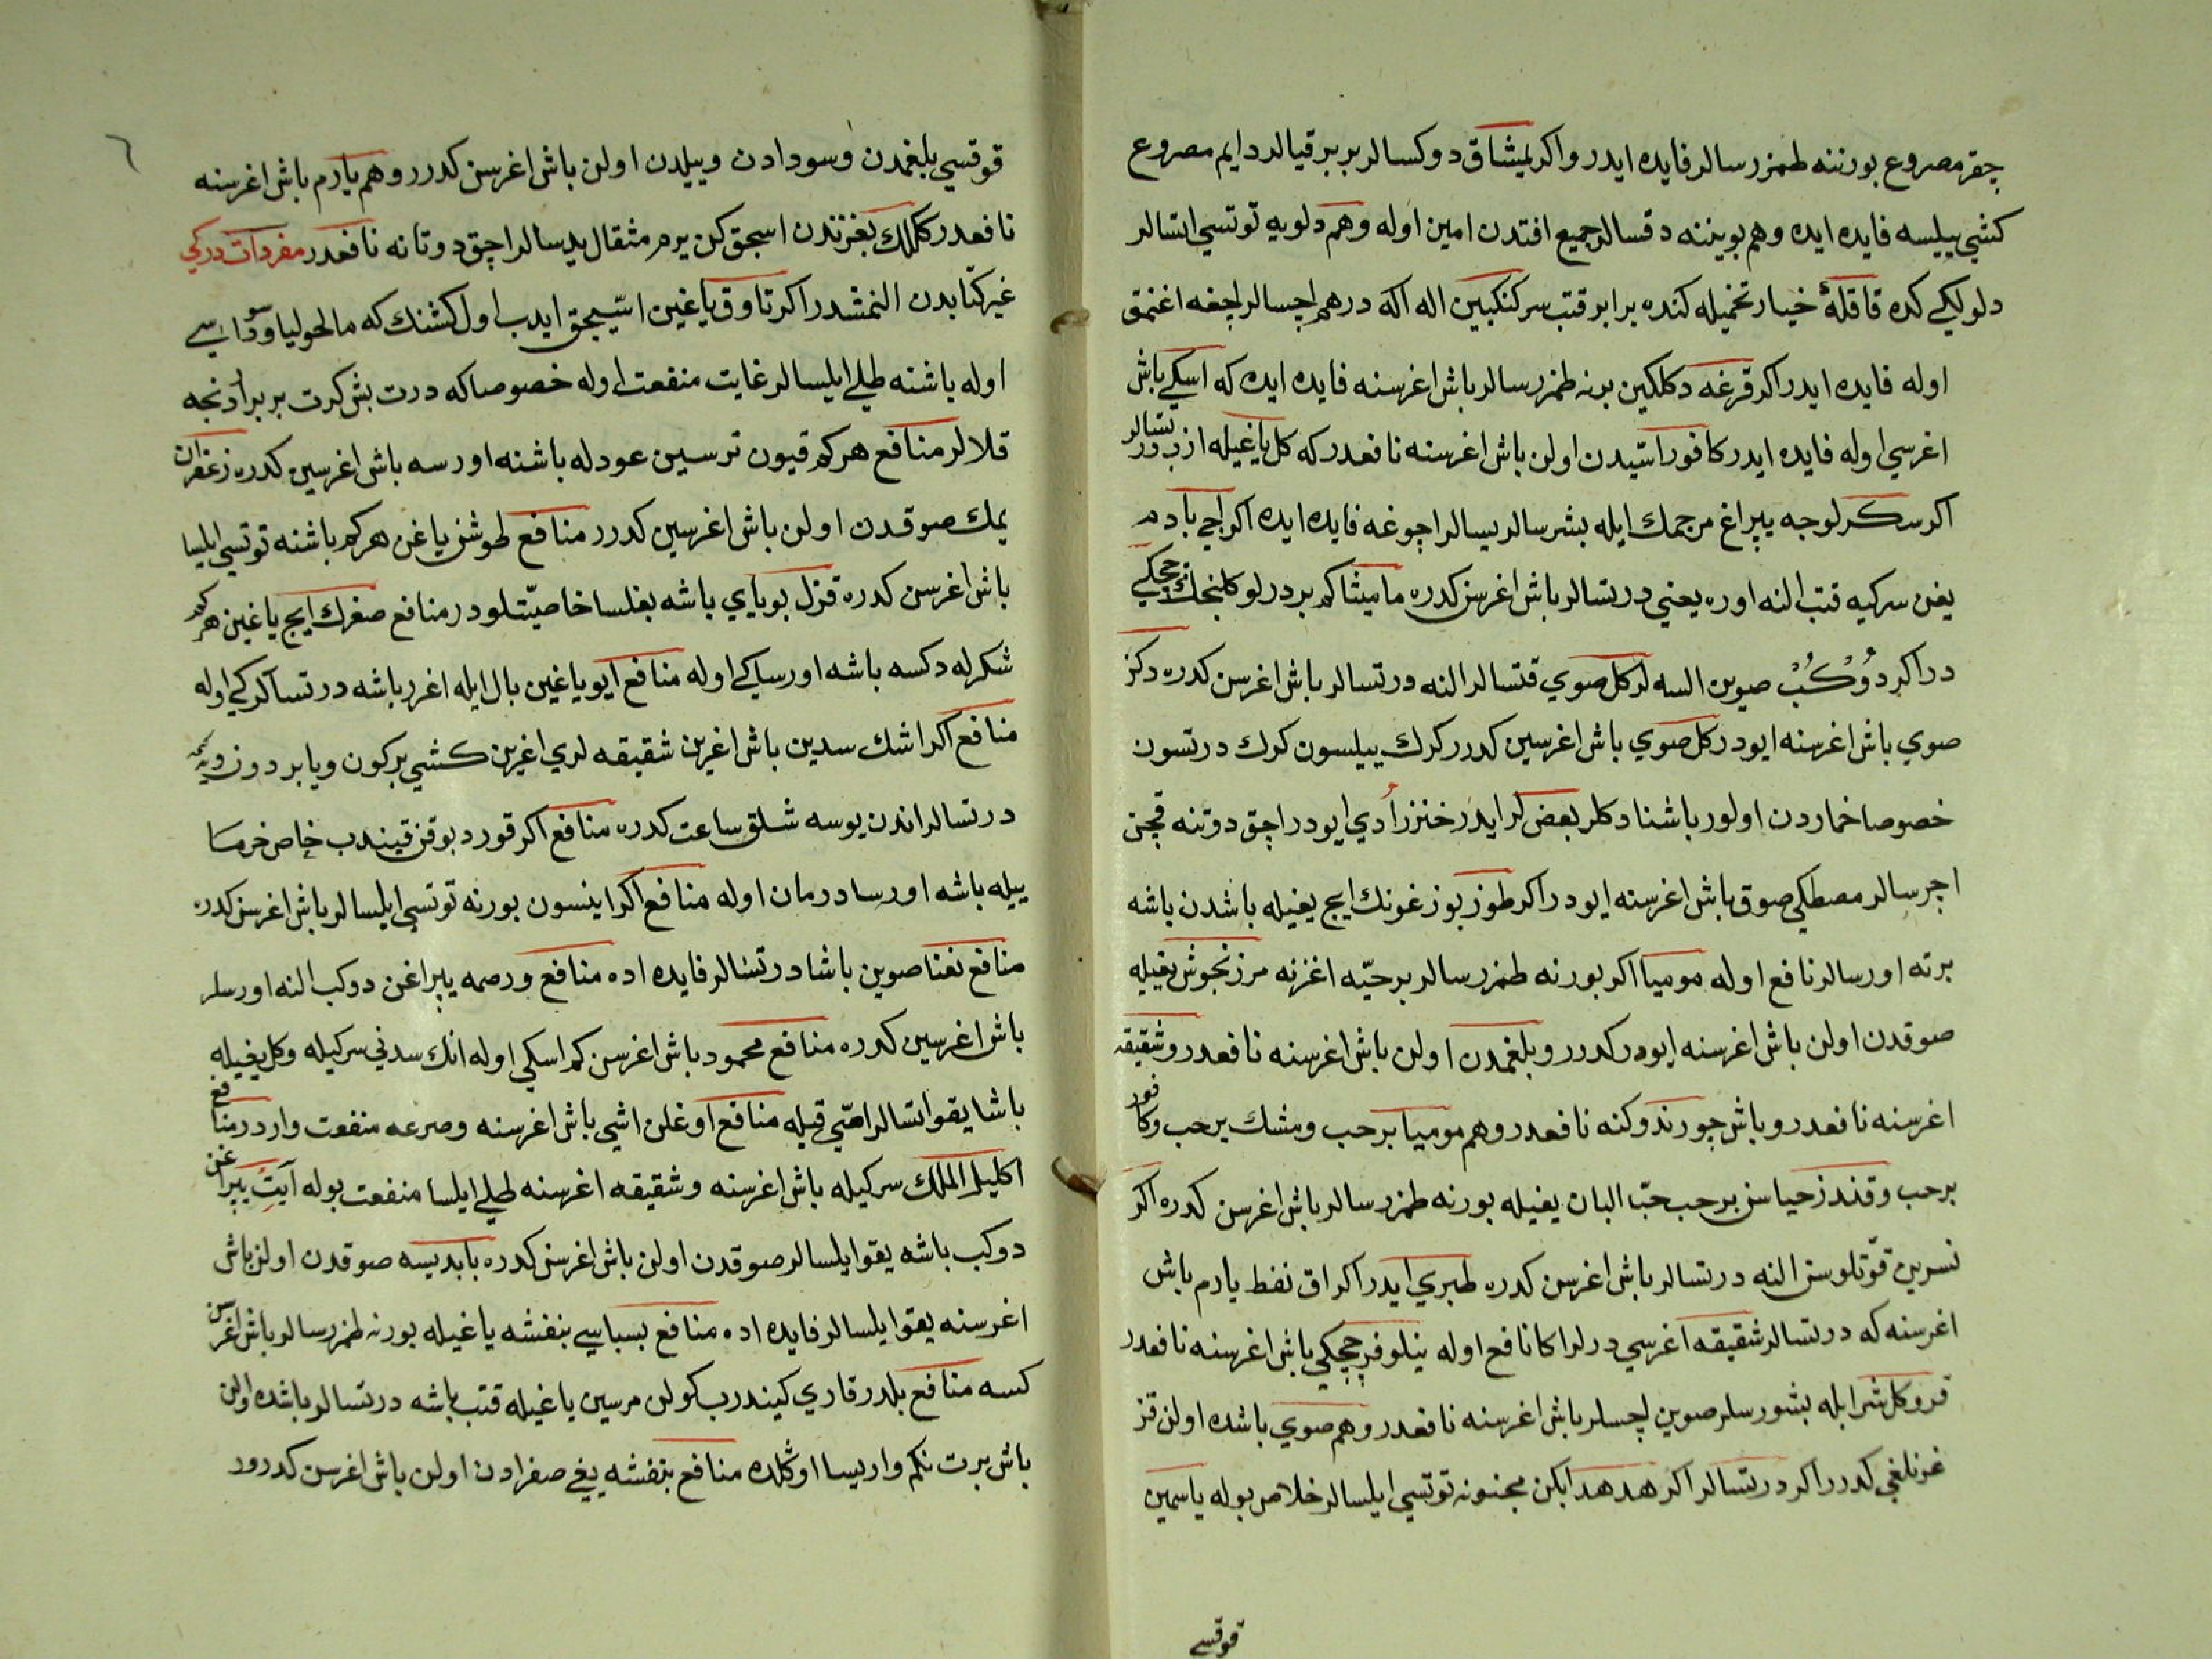 چقر مصروع بورننه طمزرسالر فایده ایدر و اکر یمشاق دوکسالر بر بر قیالر دایم مصروع
کشی ییلسه فایده ایده و هم بوینه دقسالر جمیع افتدن امین اوله و هم دلویه توتسی اتسالر
دلولکی کده قاقلۀ خیار تخمیله کنده برابر قتب سرکنکبین اله اکه درهم اچسالر اچغه اغنمق
اوله فایده ایدر اکر قرغه دکلکین برنه طمزرسالر باش اغرسنه فایده ایده که اسکی باش
اغرسی اوله فایده ایدر کافور اسّیدن اولن باش اغرسنه نافعدر که کل یاغیله ازب درتسالر
اکر سکرلوجه یپراغ مرجمك ایله بشرسالر یسالر اچوغه فایده ایده اکر اجی بادم
یغن سرکیه قتب النه اوره یعنی درتسالر باش اغرسن کدره مامیثا کم بر درلو کلنجك چچکی
در اکر دُوْکُبْ صوین السه لر کل صوی قتسالر النه درتسالر باش اغرسن کدره دکز
صوی باش اغرسنه ایودر کل صوی باش اغرسین کدرر کرك ییلسون کرك درتسون
خصوصا خماردن اولور باشنا دکلر بعض لر ایدر خنزر اُدی ایودر اچق دوتنه قچن
اچرسالر مصطکی صوق باش اغرسنه ایودر اکر طوز بوزغونك ایچ یغیله باشدن باشه
برته اورسالر نافع اوله مومیا اکر بورنه طمزرسالر بر حبّه اغزنه مرزنجوش یغیله
صوقدن اولن باش اغرسنه ایودر کدرر و بلغمدن اولن باش اغرسنه نافعدر و شقیقه
اغرسنه نافعدر و باش چورندوکنه نافعدر و هم مومیا بر حب و مشك بر حب و کافور
بر حب و قندز حیاسن بر حب حبّ البان یغیله بورنه طمزرسالر باش اغرسن کدره اکر
نسرین قوّتلوسن النه درتسالر باش اغرسن کدره طبری ایدر اکر اق نفط یارم باش
اغرسنه که درتسالر شقیقه اغرسی درلر اکا نافع اوله نیلوفر چچکی باش اغرسنه نافعدر
قرو کل شرابله بشورسلر صوین اچسلر باش اغرسنه نافعدر و هم صوی باشده اولن قز
غزنلغی کدرر اکر درتسالر اکر هدهد ابکن مجنونه توتسی ایلسالر خلاص بوله یاسمین
قوقسی
قوقسی بلغمدن و سودادن و ییلدن اولن باش اغرسن کدرر و هم یارم باش اغرسنه
نافعدر ککلك بغزندن اسجق کن یرم مثقال یدسالر اچق دوتانه نافعدر مفرداتدر کی
غیر کتابدن النمشدر اکر تاوق یاغین اسّیجق ایدب اول کشنك که مالحولیا و سوداسی
اوله باشنه طلی ایلسالر غایت منفعت اوله خصوصا که درت بش کرت بر بر اردنجه
قلالر منافع هر کم قیون ترسین عودله باشنه اورسه باش اغرسین کدره زعفران
یمك صوقدن اولن باش اغرسین کدرر منافع طوشن یاغن هر کم باشنه توتسی ایلسا
باش اغرسن کدره قزل بویایی باشه بغلسا خاصیّتلودر منافع صغرك ایچ یاغین هر کم
شکرله دکسه باشه اورسا یکی اوله منافع ایو یاغین بال ایله اغرر باشه درتسالر یکی اوله
منافع اکر اشك سدین باش اغرین شقیقه لری اغرین کشی بر کون و یا بر دون دپه سنه
درتسالر اندن یوسه شلق ساعت کدره منافع اکر قورد بوقن قیندب خاص خرما
ییله باشه اورسا درمان اوله منافع اکر اینسون بورنه توتسی ایلسالر باش اغرسن کدره
منافع نعنا صوین باشا درتسالر فایده اده منافع ورصمه یپراغن دوکب النه اورسلر
باش اغرسین کدره منافع محمود باش اغرسن کم اسکی اوله انك سدنی سرکیله و کل یغیله
باشا یقو اتسالر اهّی قیله منافع اوغلن اشی باش اغرسنه و صرعه منفعت واردر منافع
اکلیل الملك سرکیله باش اغرسنه و شقیقه اغرسنه طلی ایلسا منفعت بوله آیت یپراغن
دوکب باشه یقو ایلسالر صوقدن اولن باش اغرسن کدره بابدیسه صوقدن اولن باش
اغرسنه یقو ایلسالر فایده اده منافع بسباسی بنفشه یاغیله بورنه طمزرسالر باش اغرسن
کسه منافع بلدرقاری کیندرب کولن مرسین یاغیله قتب باشه درتسالر باشده اولن
باش برت نکم واریسا اوکلده منافع بنفشه یغی صفرادن اولن باش اغرسن کدرور